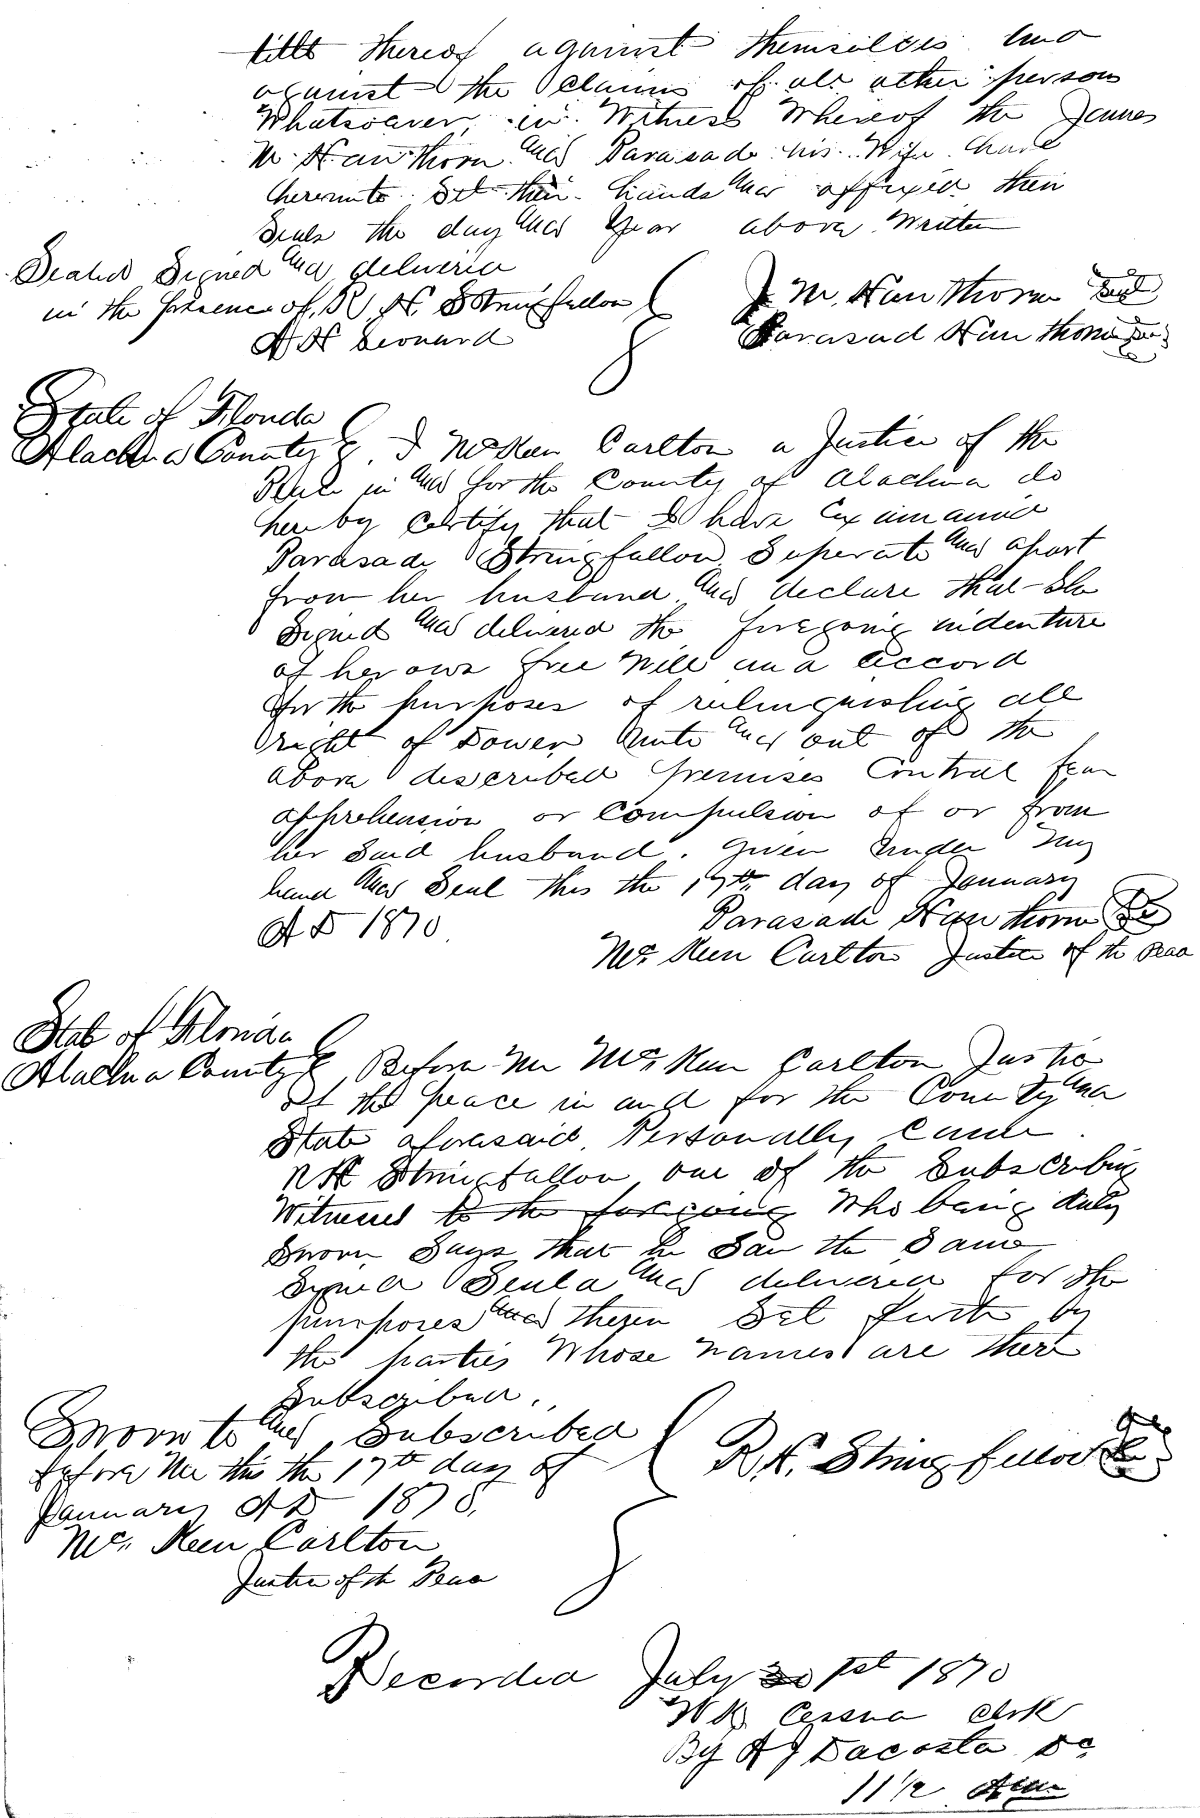 title thereof against themselves and
against the claims of all other person
Whatsoever, in Witness Whereof the James
M. Hawthorn and Parasade his Wife have
hereunto Set their hands and affixed their
Seals the day and Year above Written
Sealed Signed and delivered
in the presence of R. H. Stringfellow
J M. Hawthorn Seal
A H Leonard
Parasad Hawthorn
State of Florida
Alachua County I McKeen Carlton a Justice of the
in and for the County of Alachua do
hereby certify that I have Examained
Parasade Stringfellow Seperate and apart
from her husband and declare that She
Signed and delivered the foregoing indenture
of her own free Will and accord
for the purposes of relinquishing all
right of Dower unto and out of the
above described premises Control fear
apprehension or Compulsion of or from
her Said husband. Given under My
hand and Seal this the 17th day of January
A D 1870
Parasade Hawthorn
Mc. Keen Carlton Justice of the Peac
State of Florida
Alachua County Before Me McKeen Carlton Justic
of the peace in and for the County and
State aforesaid Personally came
R H Stringfellow one of the Subscribing
Witnesses to the forgoing Who being duly
Sworn Says that he Saw the Same
Signed Seald and delivered for the
purposes and therein Set forth by
the parties Whose names are there
Subscribed.
Sworn to and Subscribed
before Me this the 17th day of
January A D 1870.
R. H. Stringfellow
Mc. Keen Carlton
Justice of the Peac
Recorded July 1st 1870
Cessna clrk
By A J Dacosta Dc
11 1/2 Am